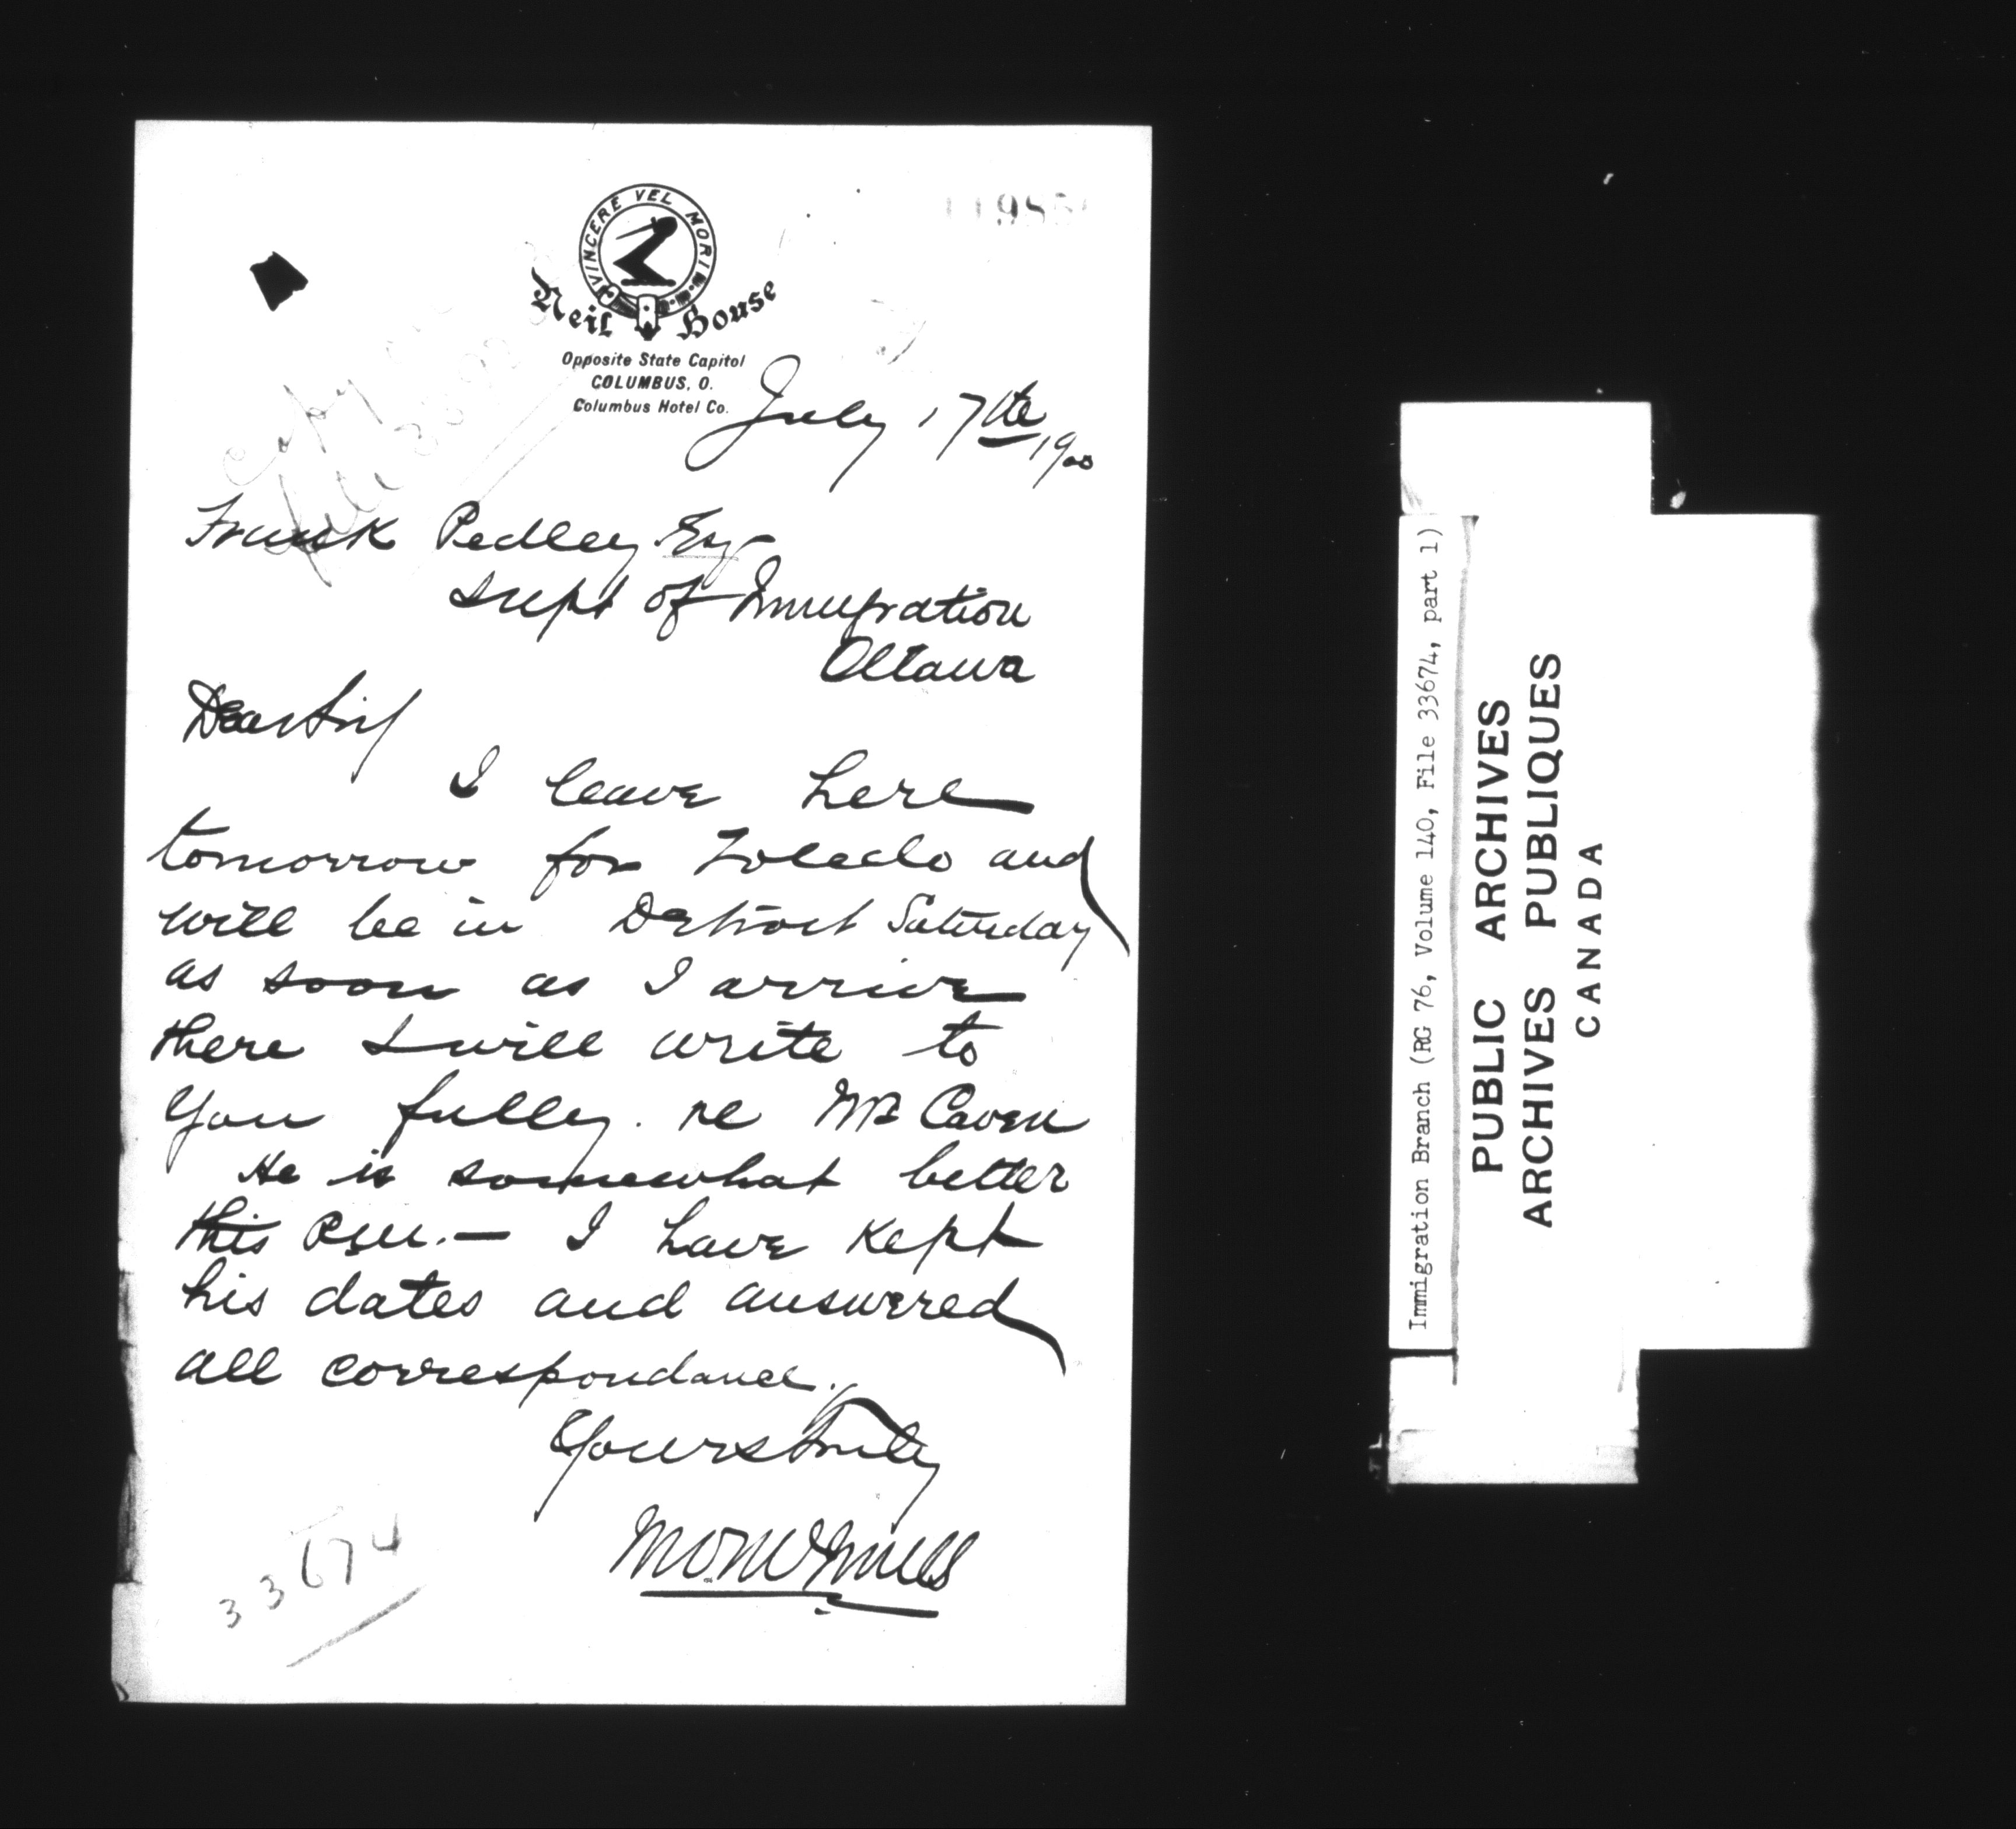 VINCERE VEL MORI
Neil House
Opposite State Capitol
COLUMBUS, O.
Columbus Hotel Co.
July 17th 1900
Frank Pedley Esq
Supt of Immigration
Ottawa
Dear Sir/
I leave here
tomorrow for Toledo and
will be in Detroit Saturday
as soon as I arrive
there I will write to
you fully. re Mr Caven
He is somewhat better
this P.M. — I have kept
his dates and answered
all correspondance.
Yours truly
33674
Immigration Branch (RG 76, Volume 140, File 33674, part 1)
PUBLIC ARCHIVES
ARCHIVES PUBLIQUES
CANADA